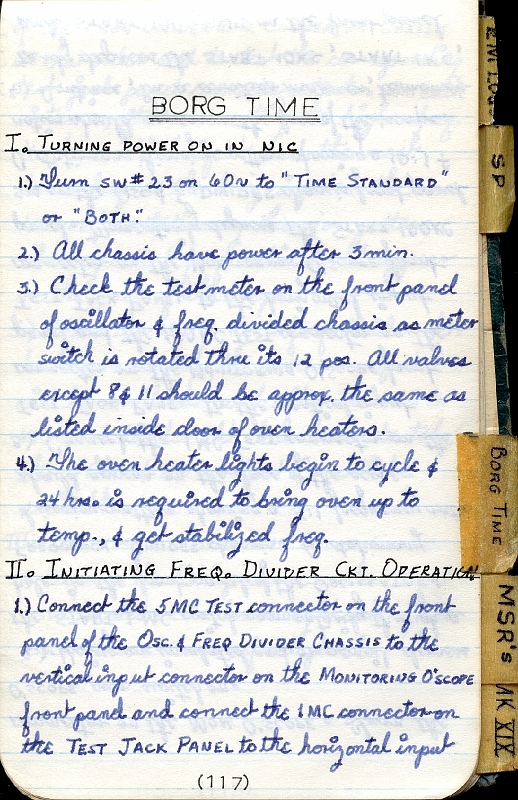 BORG TIME
I. TURNING POWER ON IN NIC
1.) Turn SW# 23 on 60~ to "TIME STANDARD"
or "BOTH."
2.) All chassis have power after 3 min.
3.) Check the test meter on the front panel
of oscillator & freq. divided chassis as meter
switch is rotated thru its 12 pos. All valves
except 8 & 11 should be approx. the same as
listed inside door of oven heaters.
4.) The oven heater lights begin to cycle &
24 hrs. is required to bring oven up to
temp., & get stabilized freq.
II. INITIATING FREQ. DIVIDER CKT. OPERATION
1.) Connect the 5MC TEST connector on the front
panel of the OSC. & FREQ DIVIDER CHASSIS to the
vertical input connector on the MONITORING O'SCOPE
front panel and connect the 1MC connector on
the TEST JACK PANEL to the horizontal input
(117)
SP
BORG TIME
MSR's
MK XIX